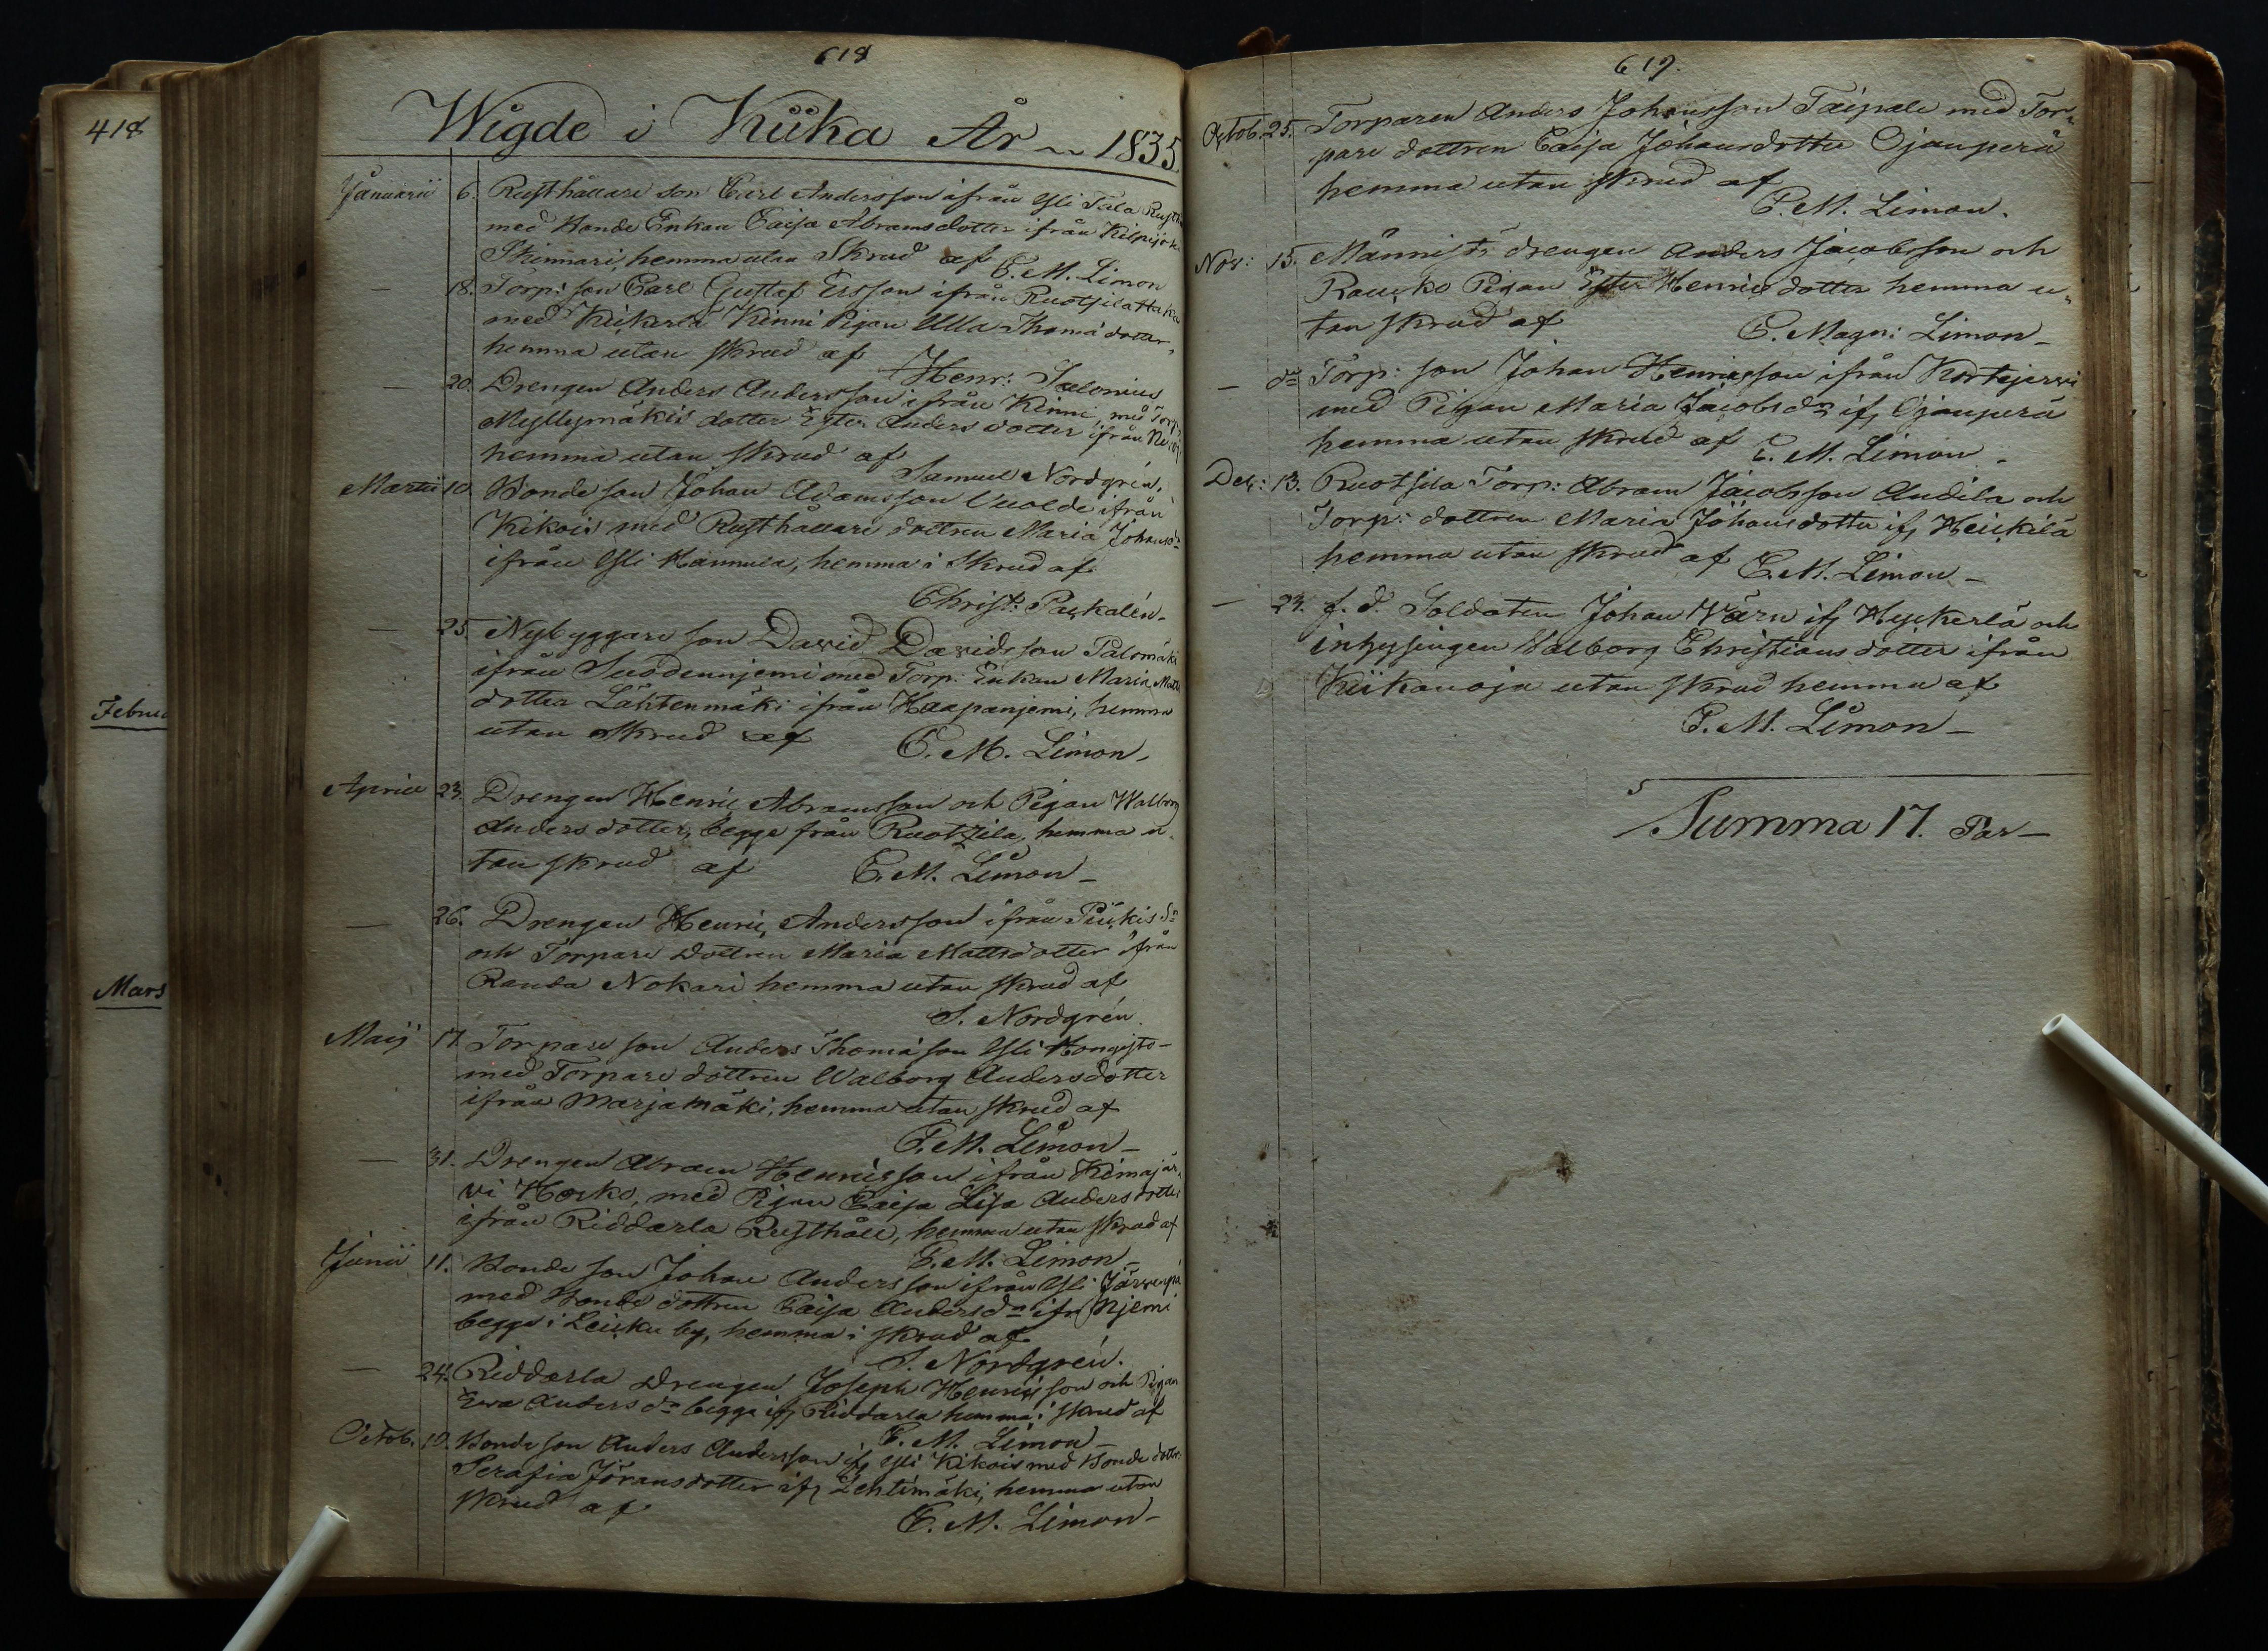 418
Februa
Mars
618
Wigde i Kiika År ~ 1835.
Januarii 6. Rusthållare son Carl Andersson ifrån Yli Tala Rusth
med Bonde Enkan Caisa Abramsdotter ifrån Kilpijoki
Skinnari, hemma utan Skrud af C. M. Limon
— 18. Torp: son Carl Gustaf Ersson ifrån Ruotsila Haka
med Kiikerlä Kinni Pigan Ulla Thomædotter,
hemma utan skrud af Henr: Salonius
— 20. Drengen Anders Andersson ifrån Kinni med Torp:
Myllymäkis dotter Ester Anders dotter ifrån
hemma utan skrud af Samuel Nordgrén.
Martii 10. Bonde son Johan Adamsson Uuolde ifrån
Kikois med Rusthållare dottren Maria Johansdr
ifrån Yli Hannula, hemma i Skrud af
Christ: Paskalén -
— 25. Nybyggare son David Davidsson Palomäki
ifrån Suodenniemi med Torp: Enkan Maria Matts
dotter Lähtenmäki ifrån Haapanjemi, hemma
utan skrud af C. M. Limon -
Aprill 23. Drengen Henric Abramsson och Pigan Walborg
Anders dotter, begge från Ruotzila, hemma u-
tan skrud af C. M. Limon -
— 26. Drengen Henric Andersson ifrån Pükis
och Torpare dottren Maria Mattsdotter ifrån
Randa Nokari hemma utan skrud af
S. Nordgrén
Maij 17. Torpare son Anders Thomæson Yli Hongisto -
med Torpare dottren Walborg Andersdotter
ifrån Marjamäki, hemma utan skrud af
C. M. Limon -
— 31. Drengen Abram Henricsson ifrån Kimajär-
vi Horko, med Pigan Caisa Lisa Andersdotter
ifrån Riddarla Rusthåll, hemma utan skrud af
C. M. Limon -
Junii 11. Bonde son Johan Andersson ifrån Yli Järvenpä
med Bonde dottren Caisa Andersdr ifr Njemi
begge i Leicku by, hemma i skrud af
S. Nordgrén.
— 24. Riddarla Drengen Joseph Henricsson och Pigan
Ewa Andersdr begge ifr Riddarla hemma i skrud af
C. M. Limon -
Octob. 19. Bonde son Anders Andersson ifr Yli Kikois med Bonde dottr.
Serafia Jöransdotter ifr Lehtimäki, hemma utan
skrud af C. M. Limon -
619.
Octob. 25. Torparen Anders Johansson Taipale med Tor-
pare dottren Caisa Johansdotter Ojanperä
hemma utan skrud af
C. M. Limon.
Nov: 15. Männistö drengen Anders Jacobsson och
Raucko Pigan Ester Henrics dotter hemma u-
tan skrud af C. Magn: Limon -
— do Torp: son Johan Henricsson ifrån Kortejervi
med Pigan Maria Jacobsdr ifr Ojanperä
hemma utan skrud af C. M. Limon -
Dec: 13. Ruotsila Torp: Abram Jacobsson Andila och
Torp: dottren Maria Johansdotter ifr Heickilä
hemma utan skrud af C. M. Limon -
— 23. f. d. Soldaten Johan Wärn ifr Hyckerlä och
inhysingen Walborg Christians dotter ifrån
Kiikanoja utan skrud hemma af
C. M. Limon -
Summa 17. Par —